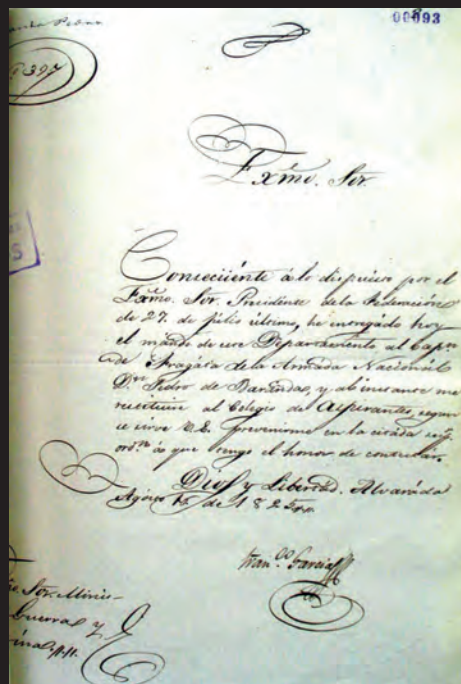 00093
397
Exmo. Sor.
Consecüente á lo dispuesto por el
Exmo. Sor. Presidente de la Federacion
de 27. de julio último, he entregado hoy
el mando de ese Departamento al Capn.
de Fragata de la Armada Nacional
Dn. Pedro de Barandas, y al instante me
restituiré al Colegio de Aspirantes, segun
se sirve V.E. prevenirme en la citada
ordn. á que tengo el honor de contestar.
Dios y Libertad. Alvarado
Agosto de 1825.
Franco. Garcia
Sor. Minis-
Guerra y
rina